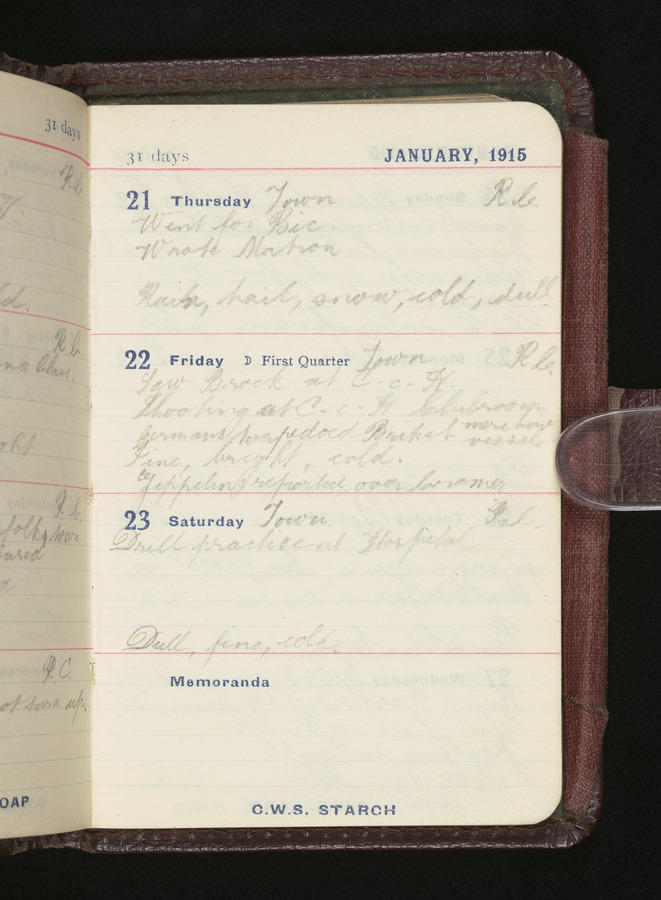 31 days
31 days JANUARY, 1915
21 Thursday Town R.C.
Went for Bic.
Wrote Matron
Rain, hail, snow, cold, dull
22 Friday First Quarter Town R.C.
Saw Brock at C-C-H.
Shooting at C-C-H Clubroom
Germans torpedoed British merchant vessel
Fine, bright, cold.
Zeppelins reported over Cromer
23 Saturday Town. R.C.
Drill practice at Hospital
Dull, fine, cold.
Memoranda
OAP
C.W.S. STARCH